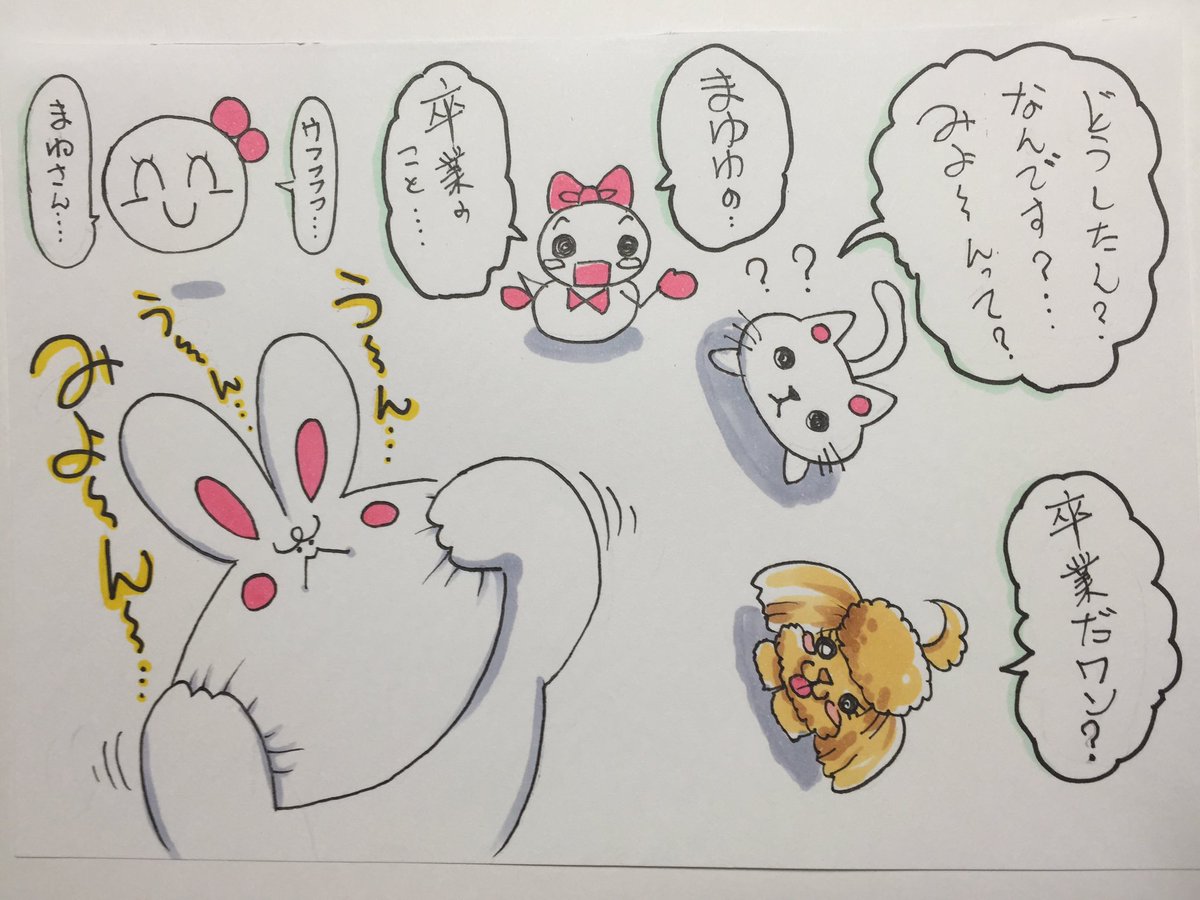 どうしたん?
なんです?…
みよ～んって?
まゆゆの…
卒業の
こと…
ウフフフッ…
まねさん…
？？
う～ん…
う～ん…
みよ～ん～…
卒業だワン?